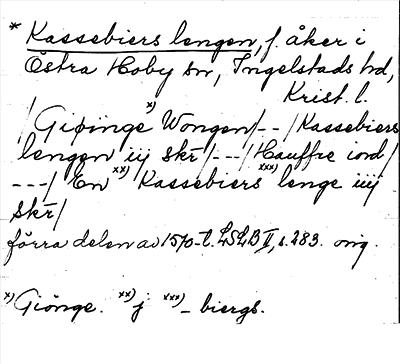 * Kassebiers lengen, f. åker i
Östra Hoby sn, Ingelstads hd,
Krist. l.
/Giøinge x) Wongen/--/Kassebiers
lengen iij skr/---/Hauffre iord/
---/En xx) Kassebiers xxx) lenge iiij
skr/
förra delen av 1570-t. LSLB II, s. 283. orig.
x) Giönge. xx) j xxx) - biergs.